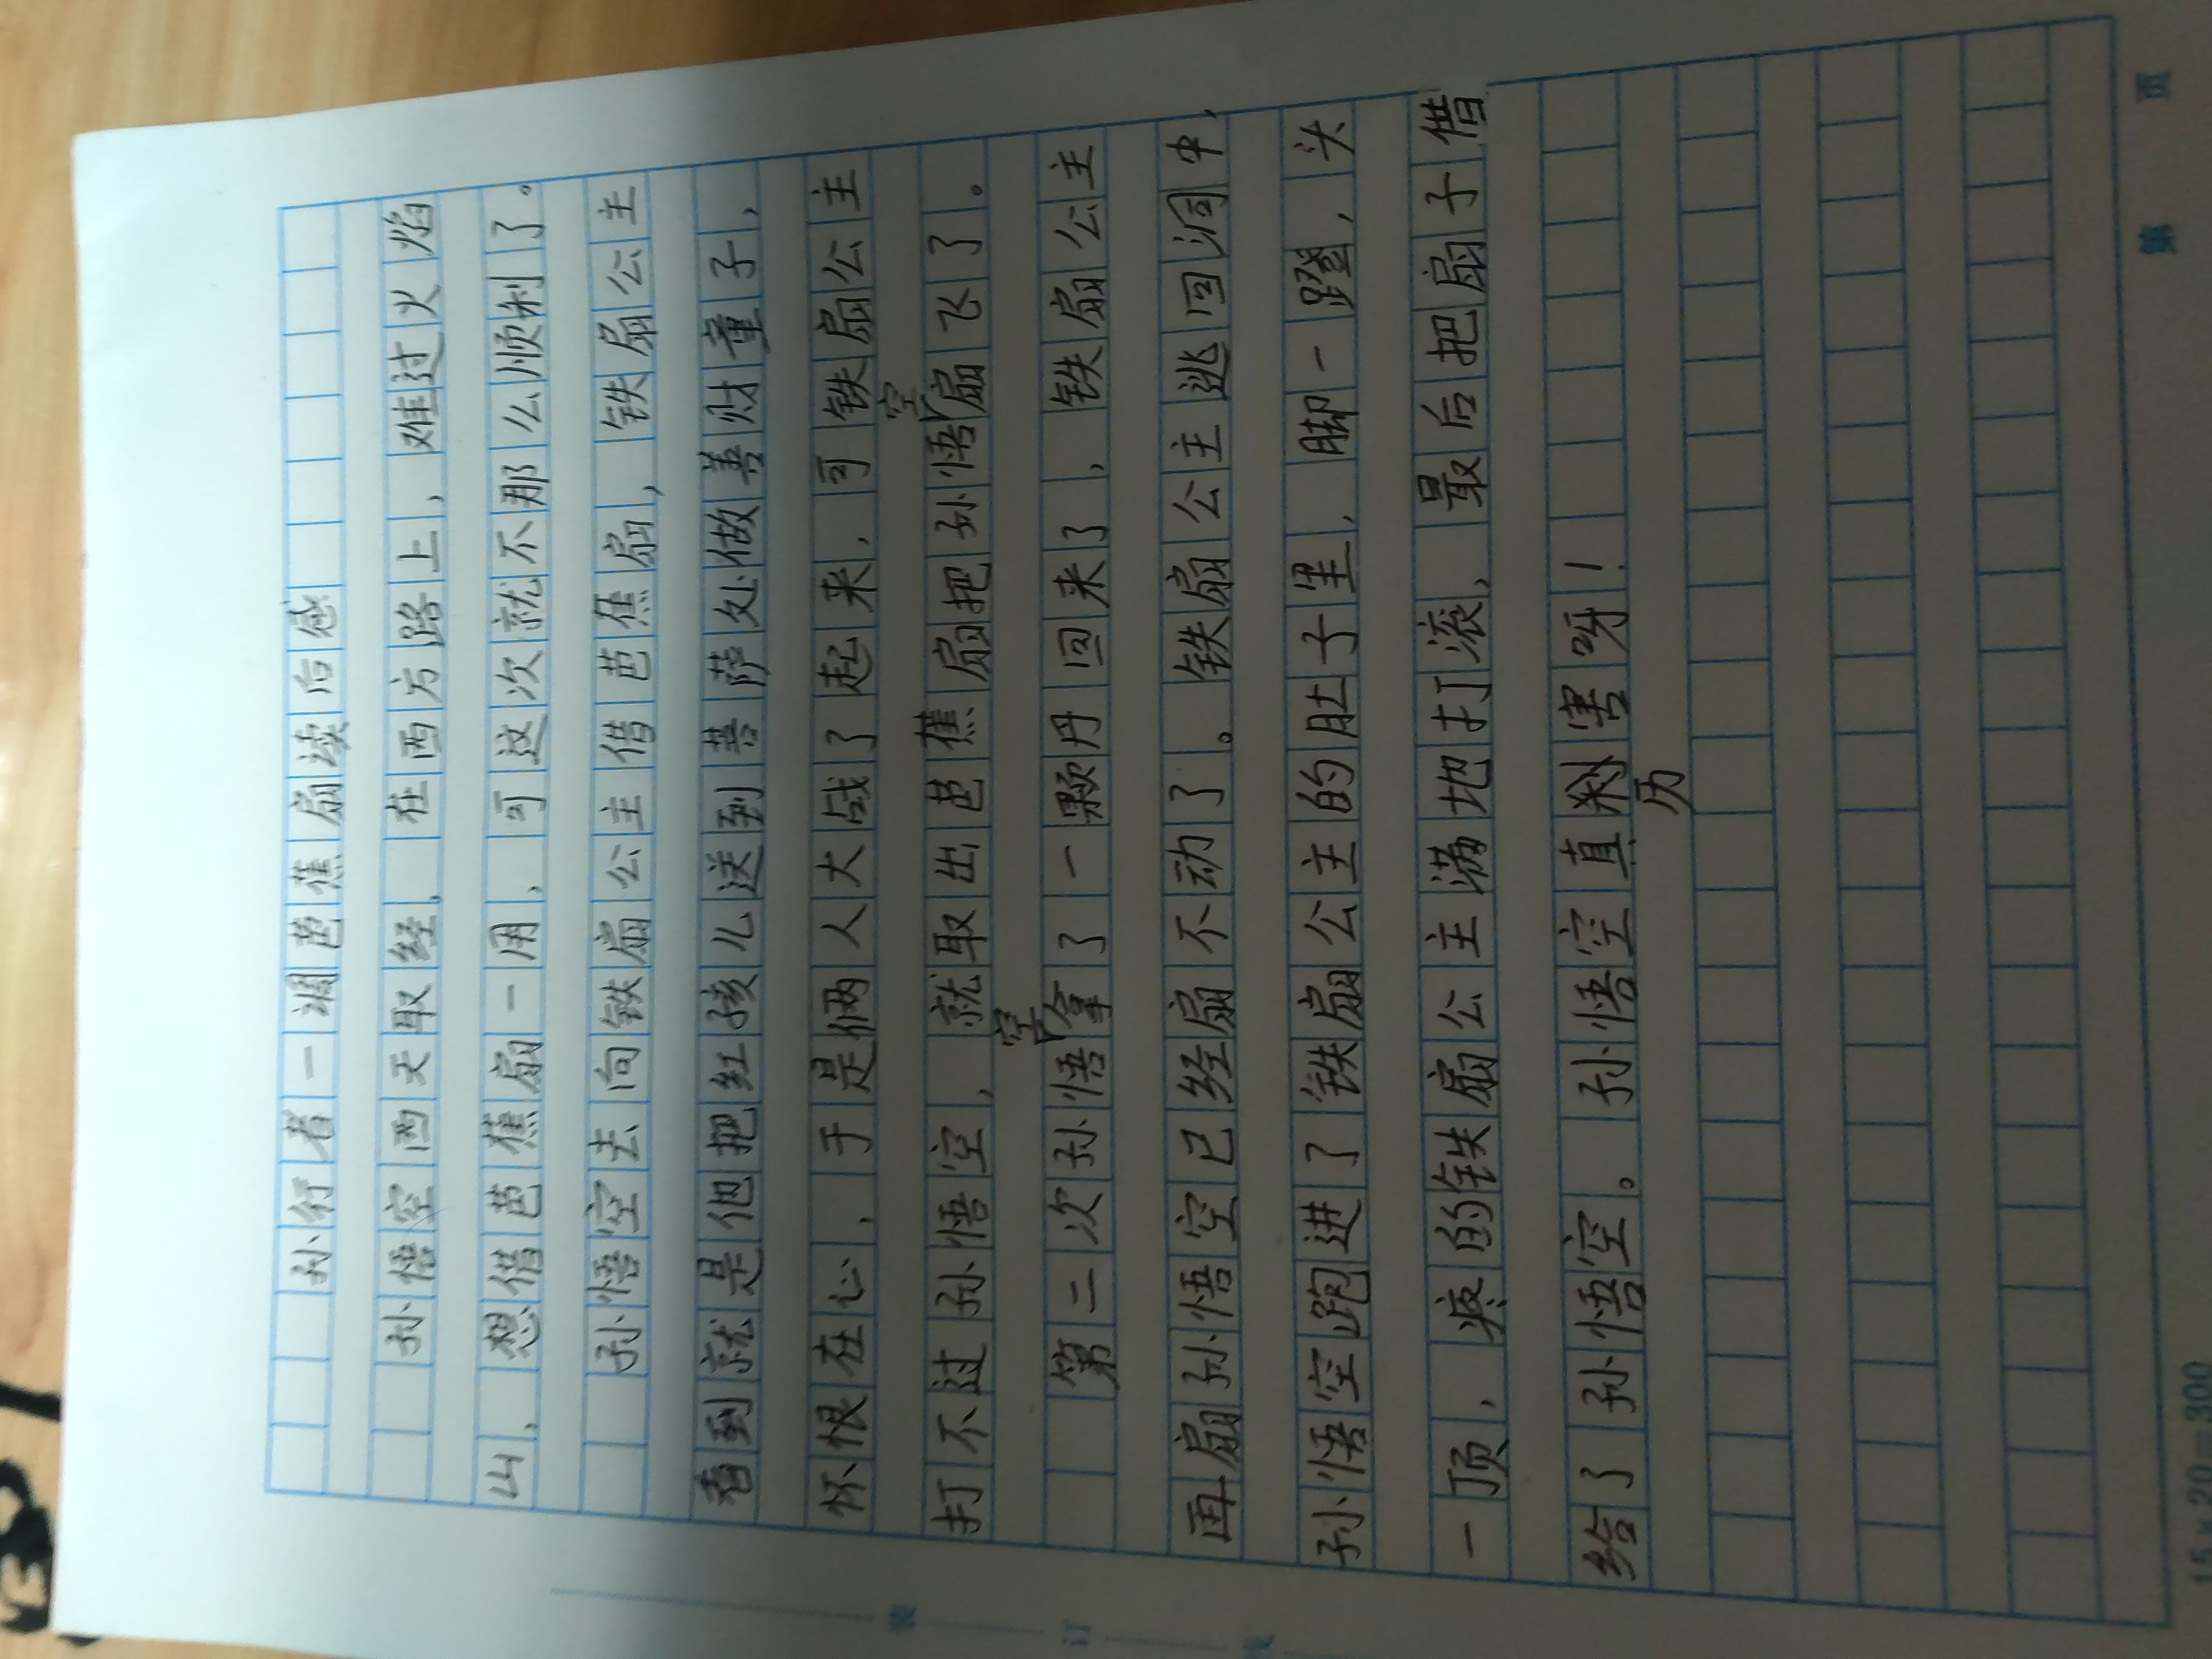 孙行者一调芭蕉扇读后感
孙悟空西天取经，在西方路上，难过火焰
山，想借芭蕉扇一用，可这次就不那么顺利了。
孙悟空去向铁扇公主借芭焦扇，铁扇公主
看到就是他把红孩儿送到菩萨处做善财童子，
怀恨在心，于是俩人大战了起来，可铁扇公主
打不过孙悟空，就取出芭蕉扇把孙悟空扇飞了。
第二次孙悟空拿了一颗丹回来了，铁扇公主
再扇孙悟空已经扇不动了。铁扇公主逃回洞中，
孙悟空跑进了铁扇公主的肚子里，脚一蹬，头
一顶，疼的铁扇公主满地打滚，最后把扇子借
给了孙悟空。孙悟空真历害呀！
装
订
线
15×20=300
第 页